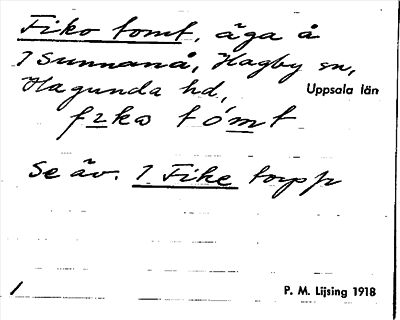 Fiko tomt, äga å
1 Sunnanå, Hagby sn,
Hagunda hd., Uppsala län
fɪko tómt
Se äv. 1 Fike torpp
1 P. M. Lijsing 1918